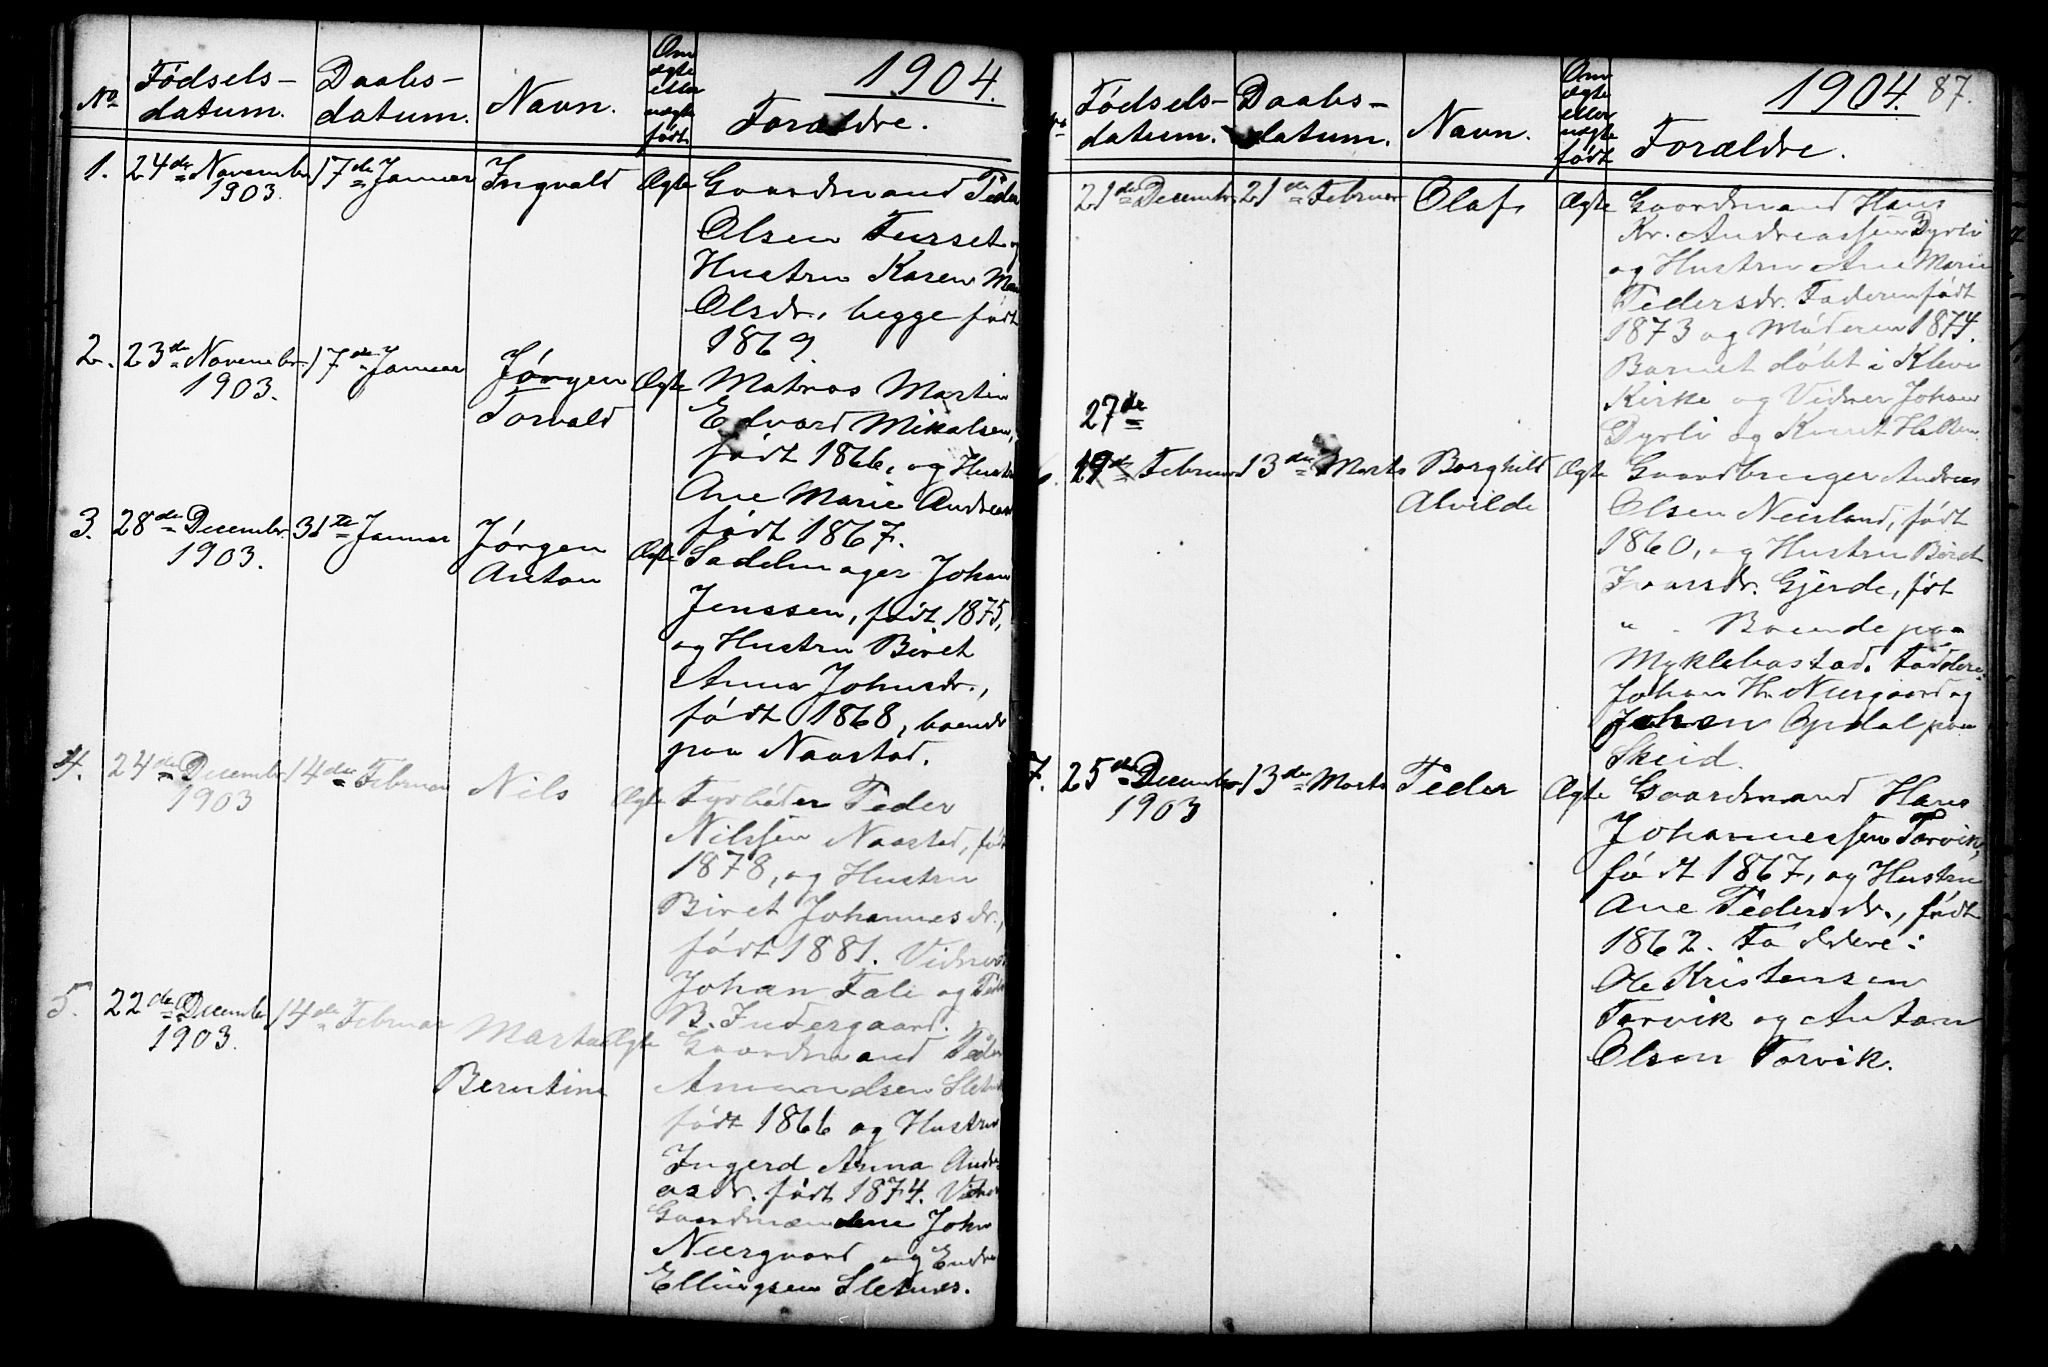 1904.
No
Fødsels-
datum.
Daabs-
datum.
Navn.
Om
ægte
eller
uægte
født.
Forældre.
1. 24de November 17de Januar Ingvald Ægte Gaardmand Peder
1903.
Olsen Furset og
Hustru Karen
Olsdr., begge født
1869.
2. 23de November 17de Januar Jørgen Ægte Matros Martin
1903. Torvald
Edvard Mikalsen,
født 1866, og Hustru
Ane Marie
født 1867.
3. 28de December 31te Januar Jørgen Ægte Sadelmager Johan
1903. Anton
Jenssen, født 1875,
og Hustru Beret
Anna Johnsdr.,
født 1868, boende
paa Naastad.
4. 24de December 14de Februar Nils Ægte Fyrbøder Peder
1903
Nilssen Naastad, født
1878, og Hustru
Beret Johannesdr.,
født 1881. Vidner
Johan Tali og
B. Indergaard.
5. 22de December 14de Februar Marta Ægte Gaardmand Peder
1903. Berntine
Amundsen
født 1866 og Hustru
Ingerd Anna Andre-
asdr. født 1874.
Gaardmændene John
Neergaard og Endre
Ellingsen Sletnes.
1904. 87.
Fødsels-
datum.
Daabs-
datum.
Navn.
Om
ægte
eller
uægte
født
Forældre.
21de December 21de Februar Olaf Ægte Gaardmand Hans
Kr. Andreassen Dyrli
og Hustru Ane Marie
Pedersdr. Faderen født
1873 og Moderen 1874.
Barnet døbt i Kleive
Kirke og Vidner Johan
Dyrli og Knut
27de
19de Februar 13de Marts Borghild Ægte Gaardbruger Andreas
Alvilde
Olsen Neerland, født
1860, og Hustru Beret
Ivarsdr. Gjerde, føt
" . Boende paa
Myklebostad. Faddere
Johan H. Neergaard og
Johan Opdal paa
Skeid.
7. 25de December 13de Marts Peder Ægte Gaardmand Hans
1903
Johannessen Torvik,
født 1867, og Hustru
Ane Pedersdr., født
1862. Faddere:
Ole Kristensen
Torvik og Anton
Olsen Torvik.